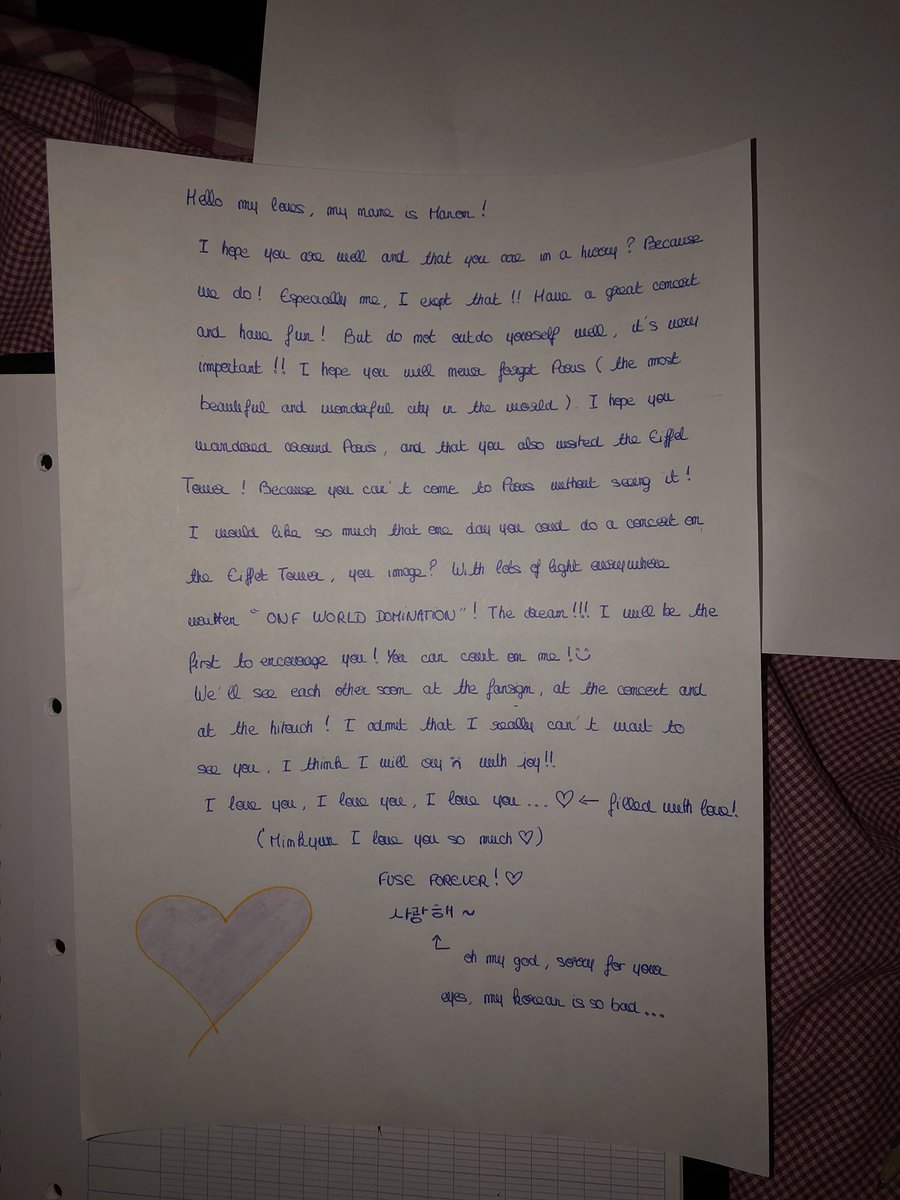 Hello my loves, my name is Manon!
I hope you are well and that you are in a hurry? Because
we do! Especially me, I exept that!! Have a great concert
and have fun! But do not outdo yourself well, it's very
important!! I hope you will never forgot Paris (the most
beautiful and wonderful city in the world). I hope you
wandered around Paris, and that you also visited the Eiffel
Tower! Because you can't come to Paris without seeing it!
I would like so much that one day you coud do a concert on
the Eiffel Tower, you image? With lots of light everywhere
written "ONF WORLD DOMINATION"! The dream!!! I will be the
first to encourage you! You can count on me! ☺
We'll see each other soon at the fansign, at the concert and
at the hitouch! I admit that I really can't wait to
see you, I think I will cry with joy!!
I love you, I love you, I love you... ♡ ← filled with love!
(Minkyun I love you so much ♡)
FUSE FOREVER! ♡
사랑해 ~
↑ oh my god, sorry for your
eyes, my korean is so bad...